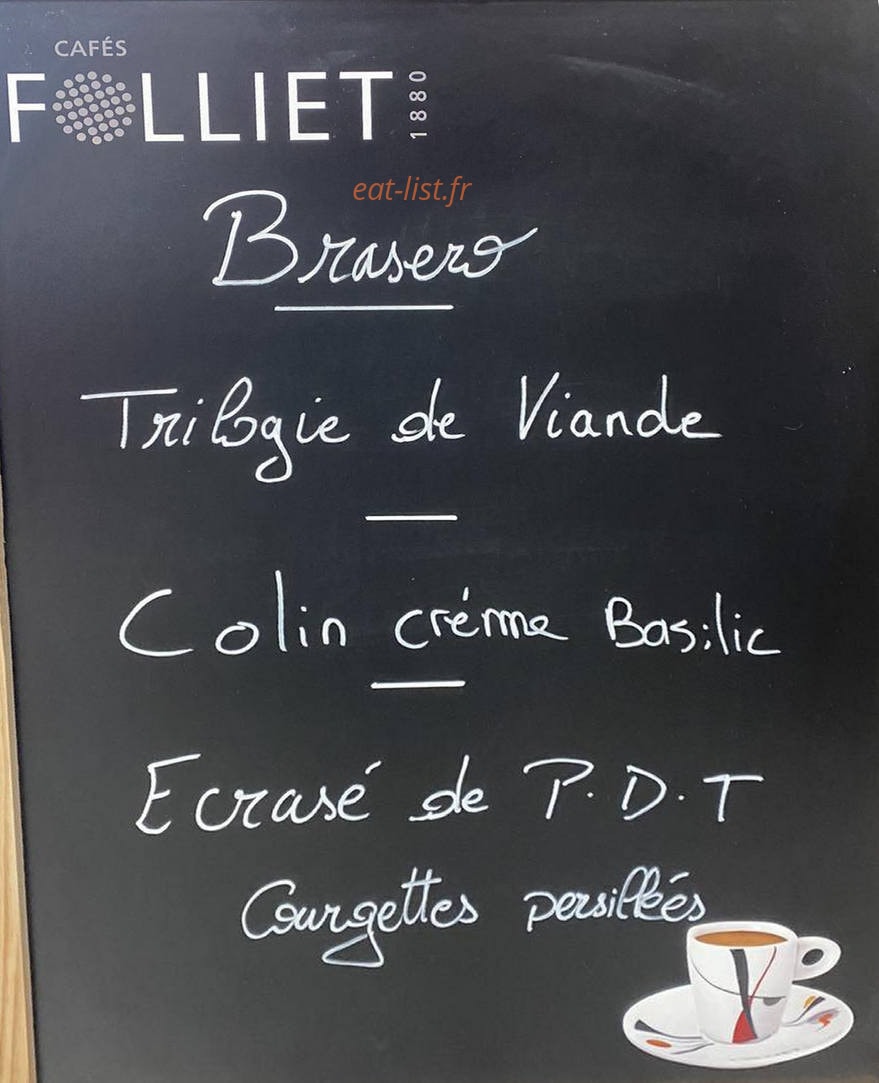 CAFÉS
FOLLIET 1880
eat-list.fr
Brasero
Trilogie de Viande
Colin créme Basilic
Ecrasé de P.D.T
Courgettes persillées